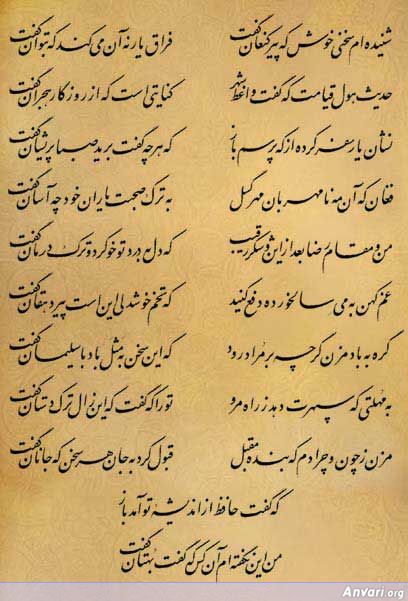 شنیده ام سخنی خوش که پیر کنعان گفت
فراق یار نه آن می کند که بتوان گفت
حدیث هول قیامت که گفت واعظ شهر
کنایتی است که از روزگار هجران گفت
نشان یار سفر کرده از که پرسم باز
که هر چه گفت برید صبا پریشان گفت
فغان که آن مه نامهربان مهر گسل
به ترک صحبت یاران خود چه آسان گفت
من و مقام رضا بعد از این و شکر رقیب
که دل به درد تو خو کرد و ترک درمان گفت
غم کهن به می سالخورده دفع کنید
که تخم خوشدلی این است پیر دهقان گفت
گره به باد مزن گر چه بر مراد رود
که این سخن به مثل باد با سلیمان گفت
به مهلتی که سپهرت دهد ز راه مرو
تو را که گفت که این زال ترک دستان گفت
مزن ز چون و چرا دم که بنده مقبل
قبول کرد به جان هر سخن که جانان گفت
که گفت حافظ از اندیشه تو آمد باز
من این نگفته ام آن کس که گفت بهتان گفت
Anvari.org